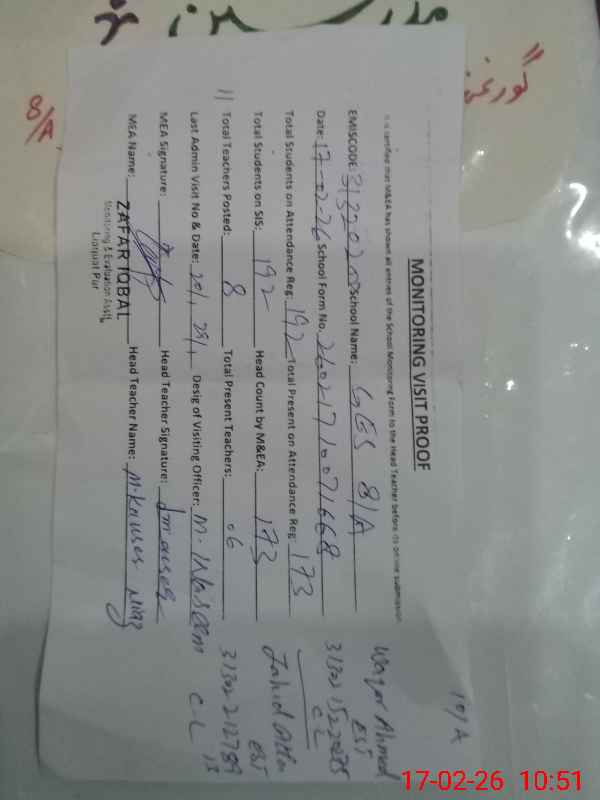 گورنمنٹ
8/A
MONITORING VISIT PROOF
It is certified that M&EA has shown all entries of the School Monitoring Form to the Head Teacher before its on-line submission
EMISCODE: School Name: GES 8/A
Date: 17-02-26 School Form No. 26021710071668
Total Students on Attendance Reg: 192 Total Present on Attendance Reg: 173
Total Students on SIS: 192 Head Count by M&EA: 173
11 Total Teachers Posted: 8 Total Present Teachers: 06
Last Admin Visit No & Date: Desig of Visiting Officer: M.
MEA Signature: Head Teacher Signature:
MEA Name: ZAFAR IQBAL Head Teacher Name: M.
Monitoring & Evaluation Asstt,
Liaquat Pur
101/A
Waqar Ahmed
EST
C L
Zahid
EST
C L
17-02-26 10:51